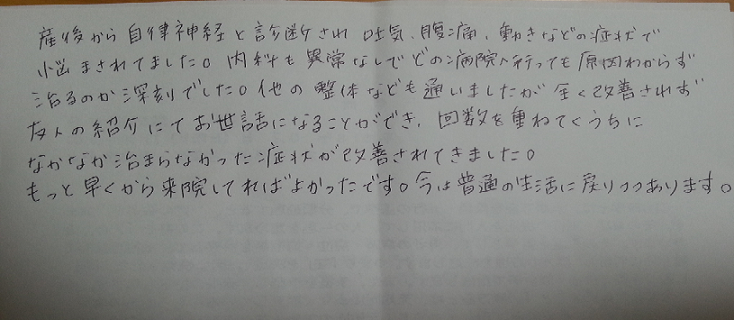 産後から自律神経と診断され 吐気、腹痛、動きなどの症状で
悩まされてました。内科も異常なしでどの病院へ行っても原因わからず
治るのか深刻でした。他の整体なども通いましたが全く改善されず
友人の紹介にてお世話になることができ、回数を重ねてくうちに
なかなか治まらなかった症状が改善されてきました。
もっと早くから来院してればよかったです。今は普通の生活に戻りつつあります。